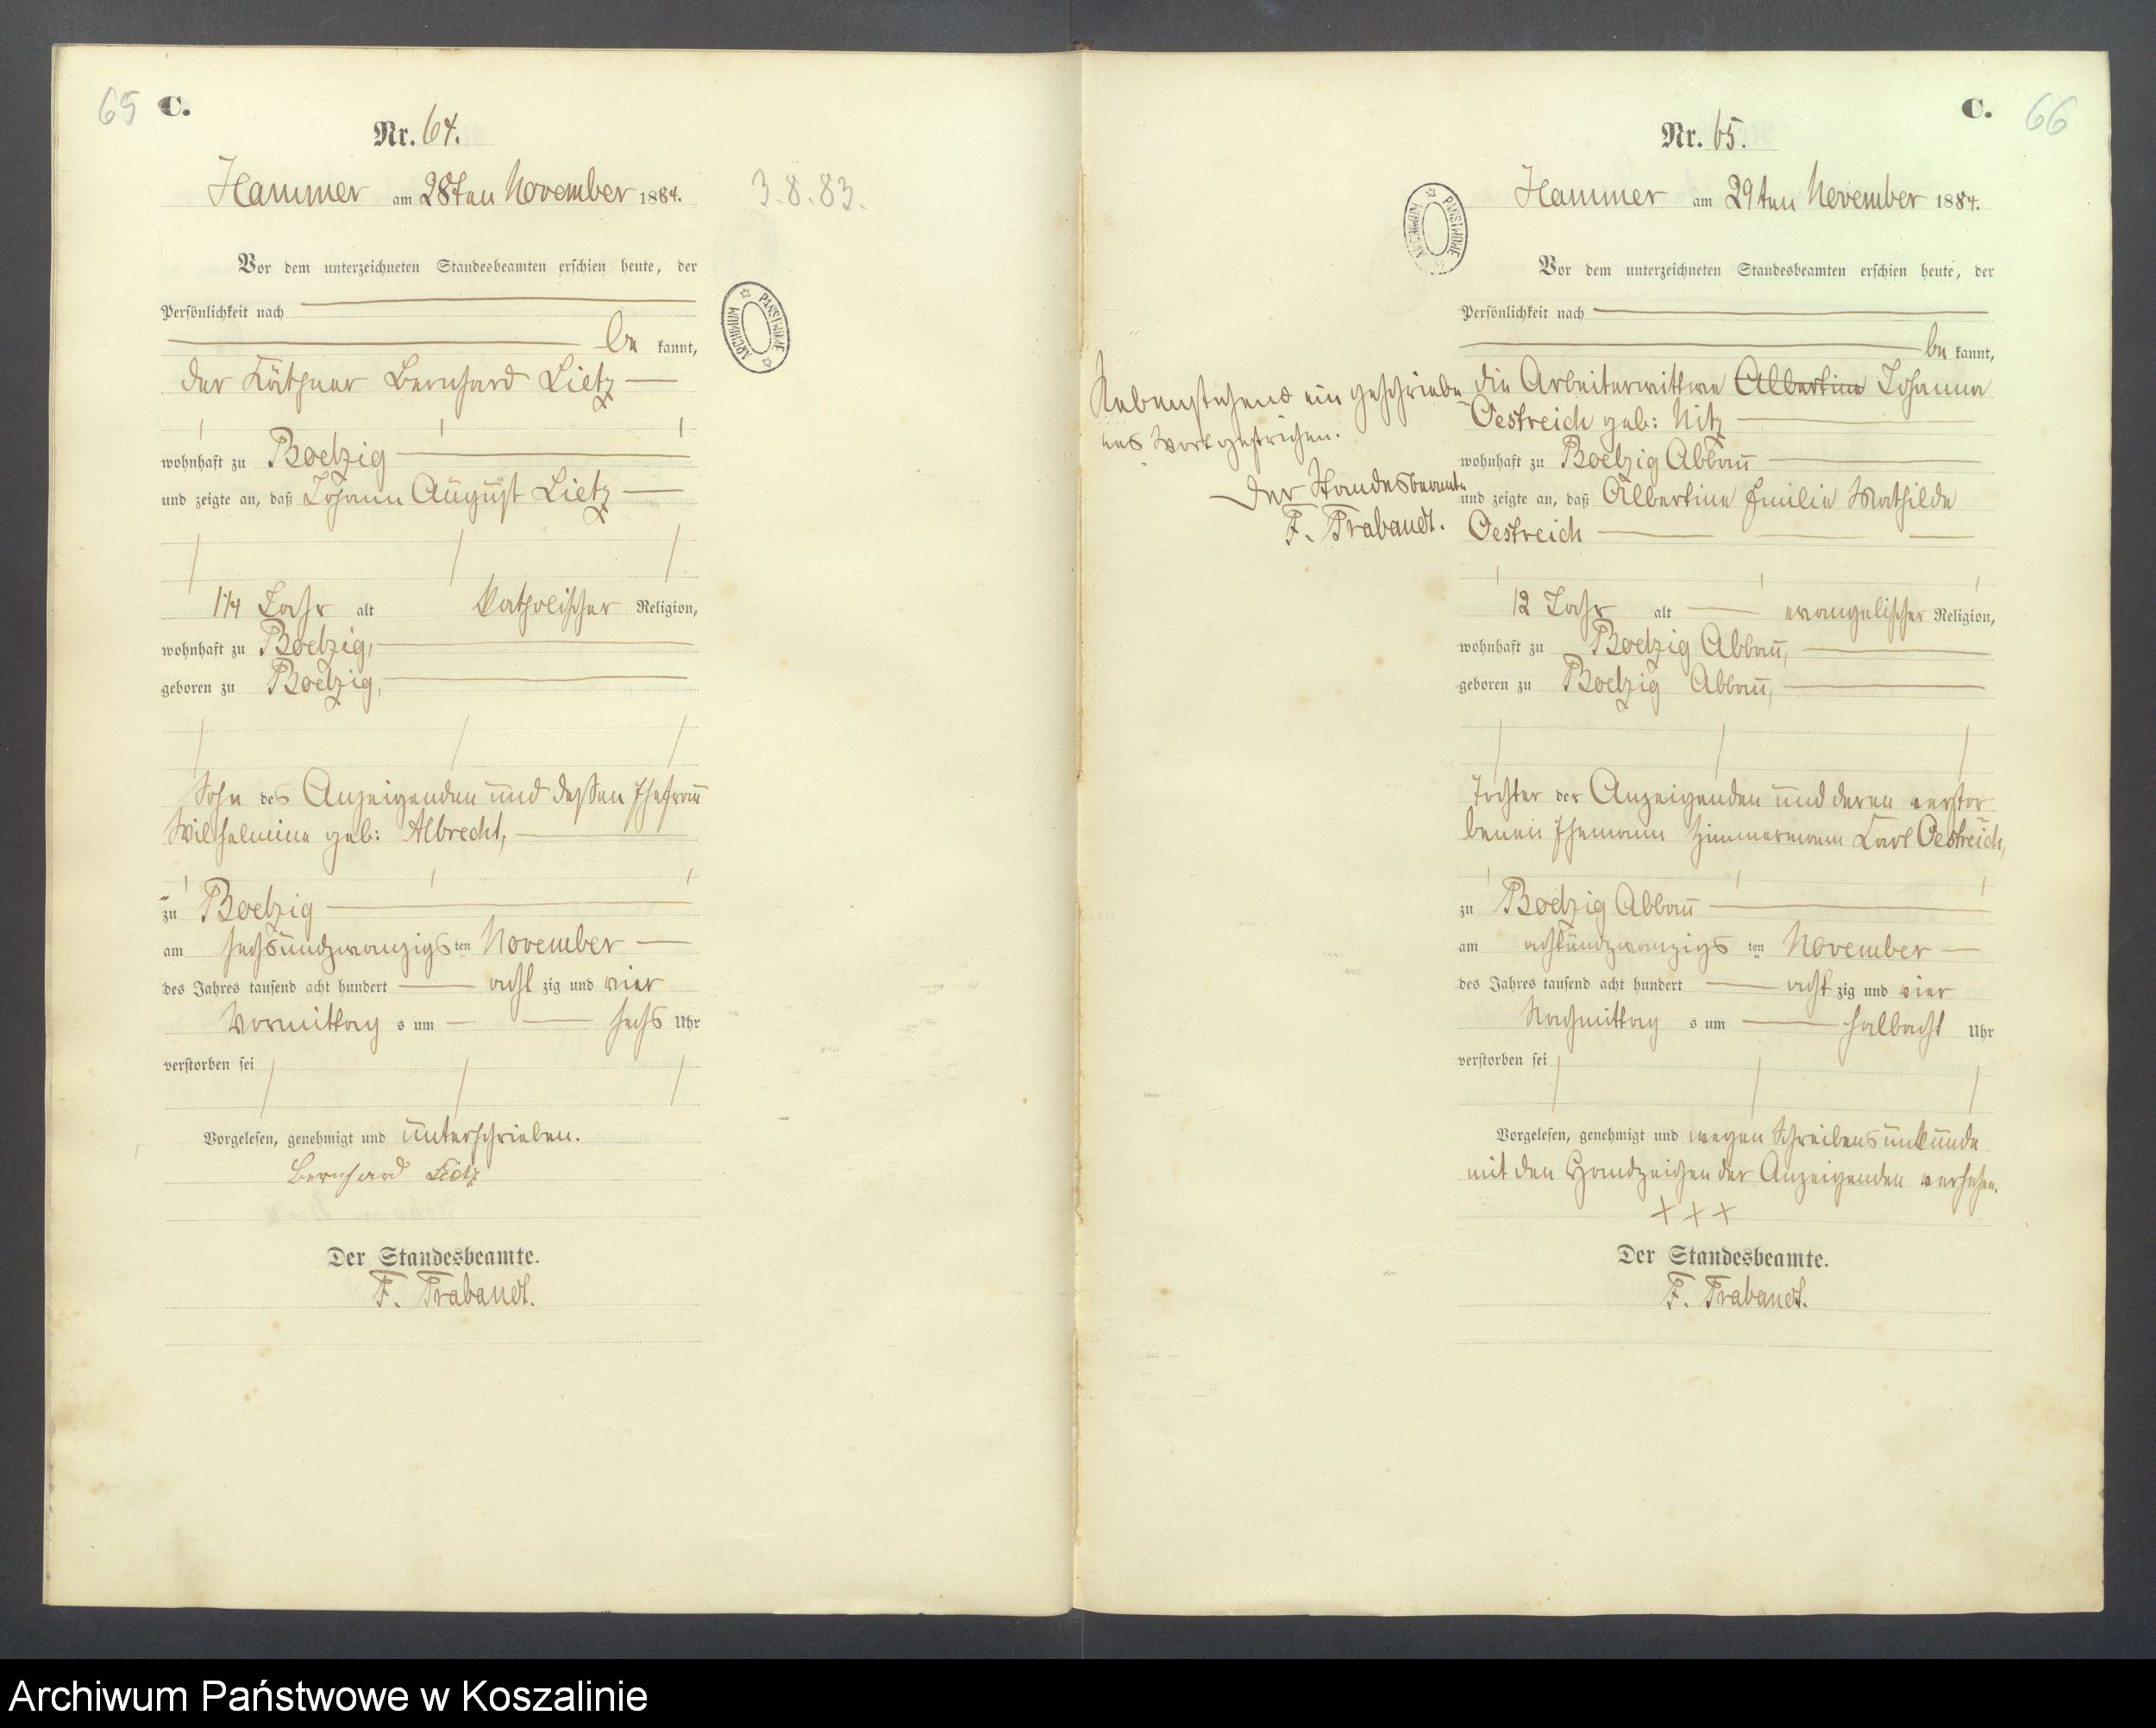 65 C.
Nr. 64.
Hammer am 28ten November 1884.
3.8.83.
Vor dem unterzeichneten Standesbeamten erschien heute, der
Persönlichkeit nach
be kannt,
der Käthner Bernhard Lietz
wohnhaft zu Boetzig
und zeigte an, daß Johann August Lietz
1 1/4 Jahr alt katholischer Religion,
wohnhaft zu Boetzig,
geboren zu Boetzig,
Sohn des Anzeigenden und dessen Ehefrau
Wilhelmine geb: Albrecht,
zu Boetzig
am sechsundzwanzigsten November
des Jahres tausend acht hundert achtzig und vier
Vormittags um sechs Uhr
verstorben sei
Vorgelesen, genehmigt und unterschrieben.
Bernhard Lietz
Der Standesbeamte.
F. Trabandt.
ARCHIWUM PAŃSTWOWE
C. 66
Nr. 65.
Hammer am 29ten November 1884.
ARCHIWUM PAŃSTWOWE
Vor dem unterzeichneten Standesbeamten erschien heute, der
Persönlichkeit nach
be kannt,
Nebenstehend ein geschriebe-
nes Wort gestrichen.
Der Standesbeamte
F. Trabandt.
die Arbeiterwittwe Albertine Johanna
Oestreich geb: Nitz
wohnhaft zu Boetzig Abbau
und zeigte an, daß Albertine Emilie Mathilde
Oestreich
12 Jahr alt evangelischer Religion,
wohnhaft zu Boetzig Abbau,
geboren zu Boetzig Abbau,
Tochter der Anzeigenden und deren verstor-
benen Ehemann Zimmermann Carl Oestreich,
zu Boetzig Abbau
am achtundzwanzigsten November
des Jahres tausend acht hundert achtzig und vier
Nachmittags um halbacht Uhr
verstorben sei
Vorgelesen, genehmigt und wegen Schreibensunkunde
mit den Handzeichen der Anzeigenden versehen.
+++
Der Standesbeamte.
F. Trabandt.
Archiwum Państwowe w Koszalinie